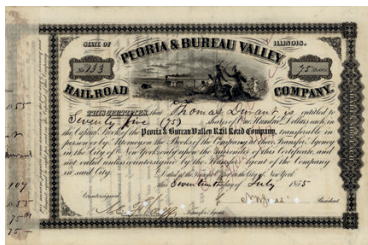 STATE OF ILLINOIS.
PEORIA & BUREAU VALLEY
No 133 75 Shares
RAILROAD COMPANY.
THIS CERTIFIES, that Thomas Durant is entitled to
Seventy five (75) Shares of One Hundred Dollars each, in
the Capital Stock of the Peoria & Bureau Valley Rail Road Company, transferable in
person or by Attorney on the Books of the Company at their Transfer Agency
in the City of New York only upon the surrender of this Certificate, and
not valid unless countersigned by the Transfer Agent of the Company
in said City.
Dated at the Transfer Office in the City of New York
this Seventeenth day of July 1855
Countersigned
Transfer Agent. President
107
55
75
75